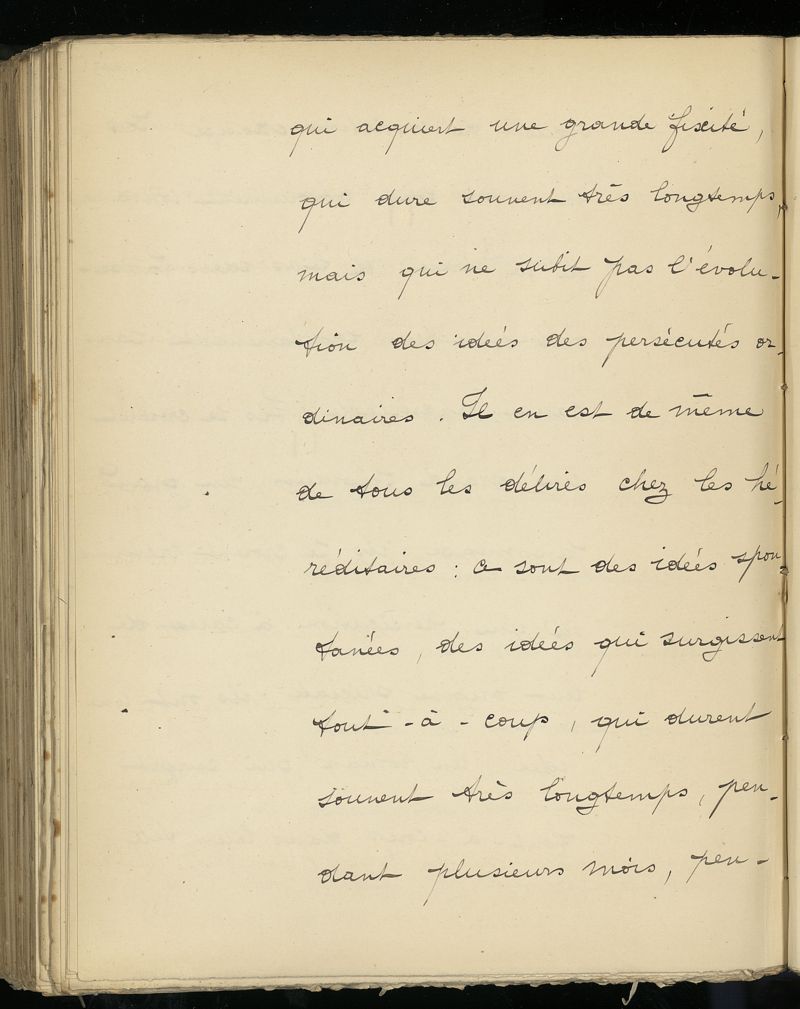 qui acquiert une grande fixité,
qui dure souvent très longtemps,
mais qui ne subit pas l'évolu-
tion des idées des persécutés or-
dinaires. Il en est de même
de tous les délires chez les hé-
réditaires : ce sont des idées spon-
tanées, des idées qui surgissent
tout-à-coup, qui durent
souvent très longtemps, pen-
dant plusieurs mois, pen-